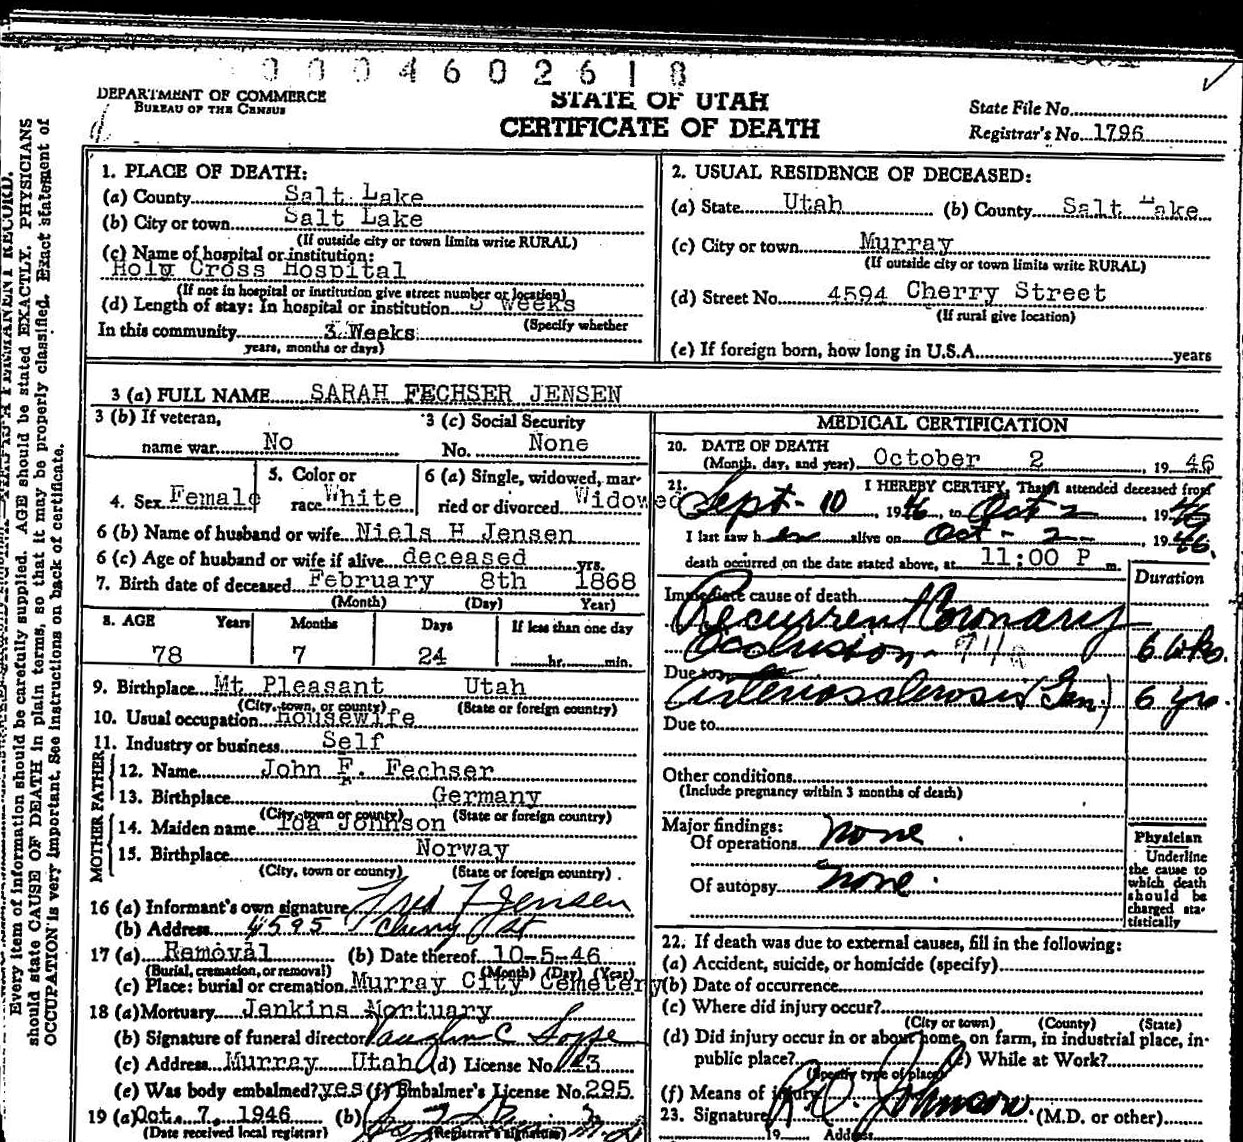 0004602618
DEPARTMENT OF COMMERCE
BUREAU OF THE CENSUS
STATE OF UTAH
CERTIFICATE OF DEATH
State File No.
Registrar's No. 1796
Every item of information should be carefully supplied. AGE should be stated EXACTLY. PHYSICIANS
should state CAUSE OF DEATH in plain terms, so that it may be properly classified. Exact statement of
OCCUPATION is very important. See instructions on back of certificate.
1. PLACE OF DEATH:
(a) County Salt Lake
(b) City or town Salt Lake
(If outside city or town limits write RURAL)
(c) Name of hospital or institution:
Holy Cross Hospital
(If not in hospital or institution give street number or location)
(d) Length of stay: In hospital or institution 3 weeks
(Specify whether
In this community 3 Weeks
years, months or days)
2. USUAL RESIDENCE OF DECEASED:
(a) State Utah (b) County Salt Lake
(c) City or town Murray
(If outside city or town limits write RURAL)
(d) Street No. 4594 Cherry Street
(If rural give location)
(e) If foreign born, how long in U.S.A. years
3 (a) FULL NAME SARAH FECHSER JENSEN
3 (b) If veteran,
name war No
3 (c) Social Security
No. None
4. Sex Female
5. Color or
race White
6 (a) Single, widowed, mar-
ried or divorced Widowed
6 (b) Name of husband or wife Niels H Jensen
6 (c) Age of husband or wife if alive deceased yrs.
7. Birth date of deceased February 8th 1868
(Month) (Day) Year)
8. AGE Years Months Days If less than one day
78 7 24 hr. min.
9. Birthplace Mt Pleasant Utah
(City, town, or county) (State or foreign country)
10. Usual occupation Housewife
11. Industry or business Self
FATHER
12. Name John F. Fechser
13. Birthplace Germany
(City, town or county) (State or foreign country)
MOTHER
14. Maiden name Ida Johnson
15. Birthplace Norway
(City, town or county) (State or foreign country)
16 (a) Informant's own signature Fred F Jensen
(b) Address 4595 Cherry St
17 (a) Removal (b) Date thereof 10-5-46
(Burial, cremation, or removal) (Month) (Day) (Year)
(c) Place: burial or cremation Murray City Cemetery
18 (a) Mortuary Jenkins Mortuary
(b) Signature of funeral director Vaughn C
(c) Address Murray Utah (d) License No. 143
(e) Was body embalmed? yes (f) Embalmer's License No. 295
19 (a) Oct. 7, 1946 (b)
(Date received local registrar) (Registrar's signature)
MEDICAL CERTIFICATION
20. DATE OF DEATH
(Month, day, and year) October 2, 1946
21. I HEREBY CERTIFY, That I attended deceased from
Sept - 10, 1946, to Oct 2, 1946
I last saw her alive on Oct - 2 -, 1946.
death occurred on the date stated above, at 11:00 P m.
Duration
Immediate cause of death
Recurrent Coronary
Occlusion - 6 wks.
Due to
Arteriosclerosis (Gen.) 6 yrs.
Due to
Other conditions
(Include pregnancy within 3 months of death)
Major findings:
Of operations none.
Of autopsy none.
Physician
Underline
the cause to
which death
should be
charged sta-
tistically
22. If death was due to external causes, fill in the following:
(a) Accident, suicide, or homicide (specify)
(b) Date of occurrence
(c) Where did injury occur?
(City or town) (County) (State)
(d) Did injury occur in or about home, on farm, in industrial place, in-
public place? (e) While at Work?
(Specify type of place)
(f) Means of injury
23. Signature R. O. Johnson. (M.D. or other)
19 Address